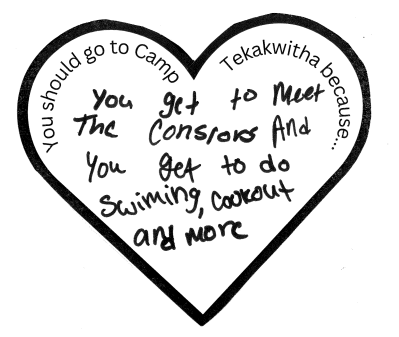 You should go to Camp Tekakwitha because...
You get to Meet
The Conslors And
You get to do
Swiming, Cookout
and more